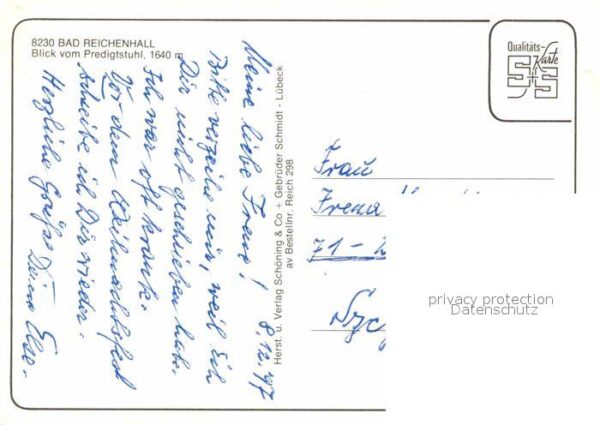 8230 BAD REICHENHALL
Blick vom Predigtstuhl, 1640 m
Meine liebe Frena! 8.12.97
Bitte verzeihe mir, weil ich
Dir nicht geschrieben habe.
Ich war oft krank.
Vor dem Weihnachtsfest
schreibe ich Dir wieder.
Herzliche Grüße Deine Else.
Herst. u. Verlag Schöning & Co + Gebrüder Schmidt - Lübeck
av Bestellnr. Reich 298
Qualitäts-
Karte
Frau
Frena
71-
privacy protection
Datenschutz